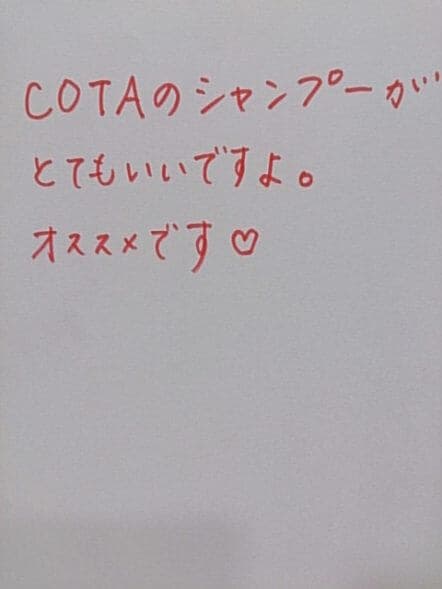 COTAのシャンプーが
とてもいいですよ。
オススメです♡